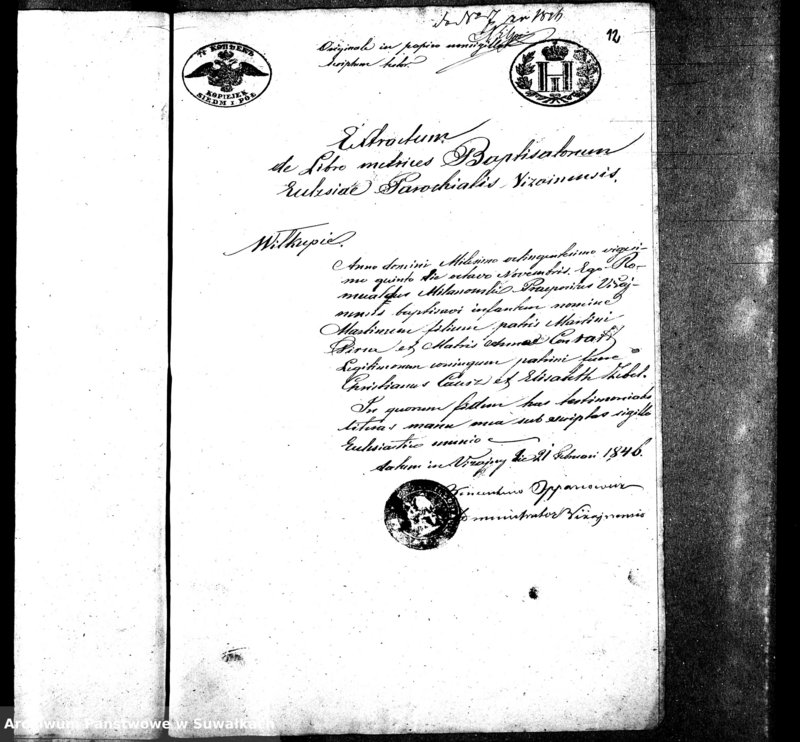 do No 7 an 1846
12
7½ КОПѢЕКЪ
KOPIEJEK
SIEDM I PÓŁ
Originale in papiro
scriptum
Extractum
de Libro metrices Baptisatorum
Eclesiae Parochialis Vizainensis.
Wilkupie.
Anno domini Milesimo octingentesimo vigesi-
mo quinto die octavo Novembris. Ego Ro-
mualdus Milanowski Praepositus Vizaj-
nensis baptisavi infantem nomine
Martinum filium patris Martini
et Matris Annae
Legitimorum coniugum patrini fuere
Christianus et Elisabeth
In quorum fidem has testimoniales
literas manu mea sub scriptas sigillo
Eclesiastico munio
datum in Vizajny die 21 Februari 1846.
Vincentius
Administrator Vizajnensis
Archiwum Państwowe w Suwałkach